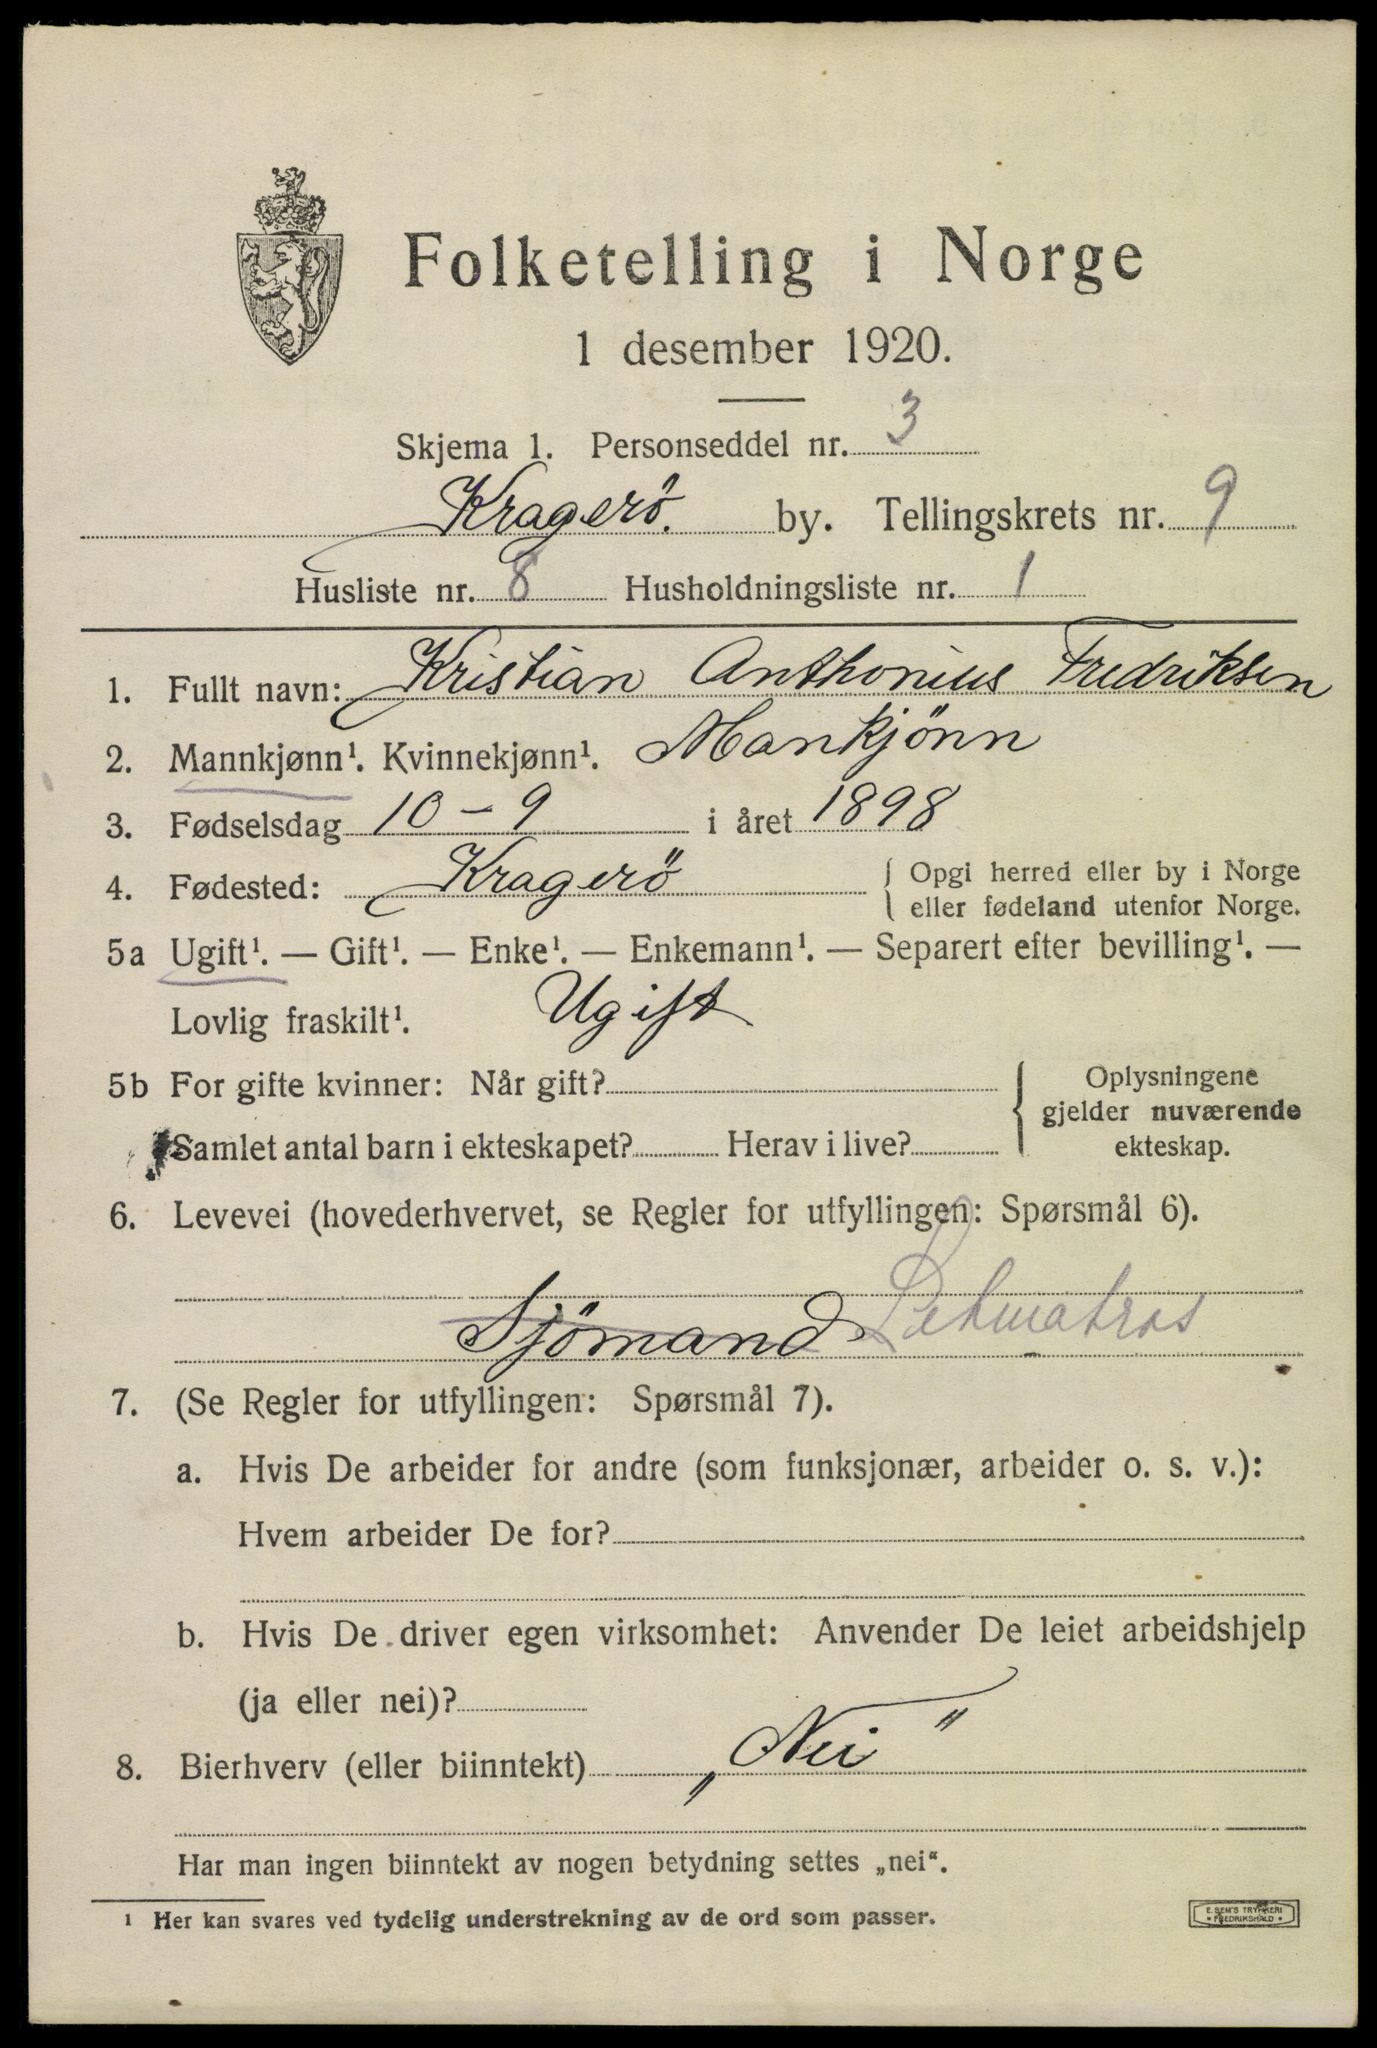 Folketelling i Norge
1 desember 1920.
Skjema 1. Personseddel nr. 3
Kragerö. by. Tellingskrets nr. 9
Husliste nr. 8 Husholdningsliste nr. 1
1. Fullt navn: Kristian Anthonius Fredriksen
2. Mannkjønn¹. Kvinnekjønn¹. Mankjönn
3. Fødselsdag 10 - 9 i året 1898
4. Fødested: Kragerö { Opgi herred eller by i Norge
eller fødeland utenfor Norge.
5a Ugift¹. — Gift¹. — Enke¹. — Enkemann¹. — Separert efter bevilling¹. —
Lovlig fraskilt¹. Ugift
5b For gifte kvinner: Når gift? { Oplysningene
gjelder nuværende
Samlet antal barn i ekteskapet? Herav i live? ekteskap.
6. Levevei (hovederhvervet, se Regler for utfyllingen: Spørsmål 6).
Sjömand Letmatros
7. (Se Regler for utfyllingen: Spørsmål 7).
a. Hvis De arbeider for andre (som funksjonær, arbeider o. s. v.):
Hvem arbeider De for?
b. Hvis De driver egen virksomhet: Anvender De leiet arbeidshjelp
(ja eller nei)?
8. Bierhverv (eller biinntekt) „Nei"
Har man ingen biinntekt av nogen betydning settes „nei“.
¹ Her kan svares ved tydelig understrekning av de ord som passer.
E. SEM'S TRYKKERI
• FREDRIKSHALD •